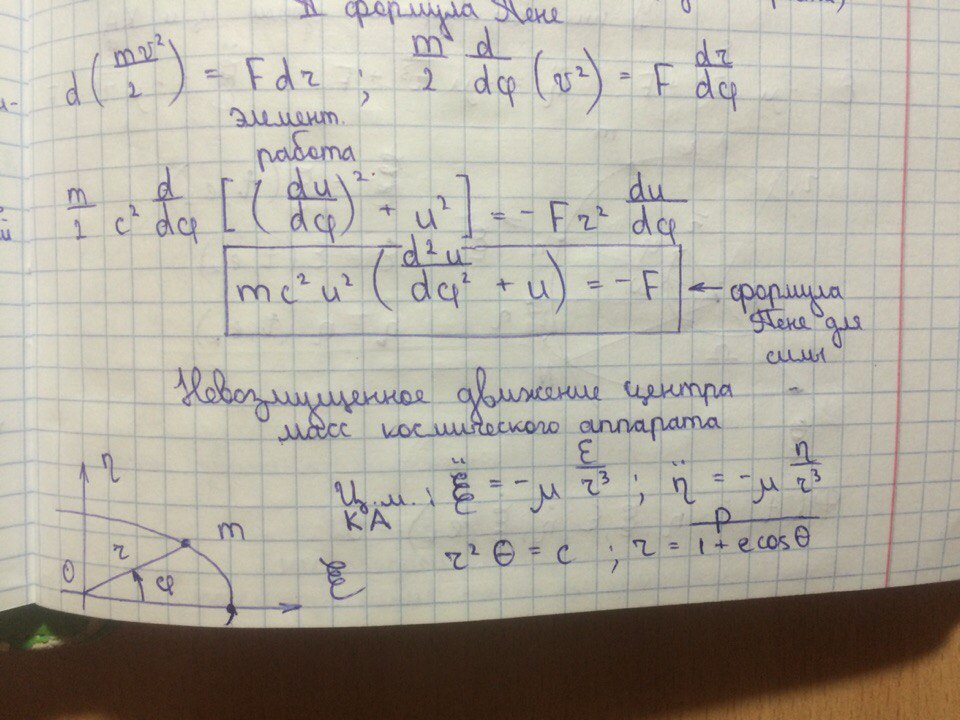 II формула Бене
d(mv²/2) = Fdr ; m/2 d/dφ (v²) = F dr/dφ
элемент.
работа
m/2 c² d/dφ [(du/dφ)² + u²] = - F r² du/dφ
mc²u² (d²u/dφ² + u) = - F ← формула
Бене для
силы
Невозмущенное движение центра
масс космического аппарата
η
Ц.м.: ξ̈ = -μ ξ/r³ ; η̈ = -μ η/r³
КА
m
r² θ = c ; r = p/1+ecosθ
r
0
φ
ξ